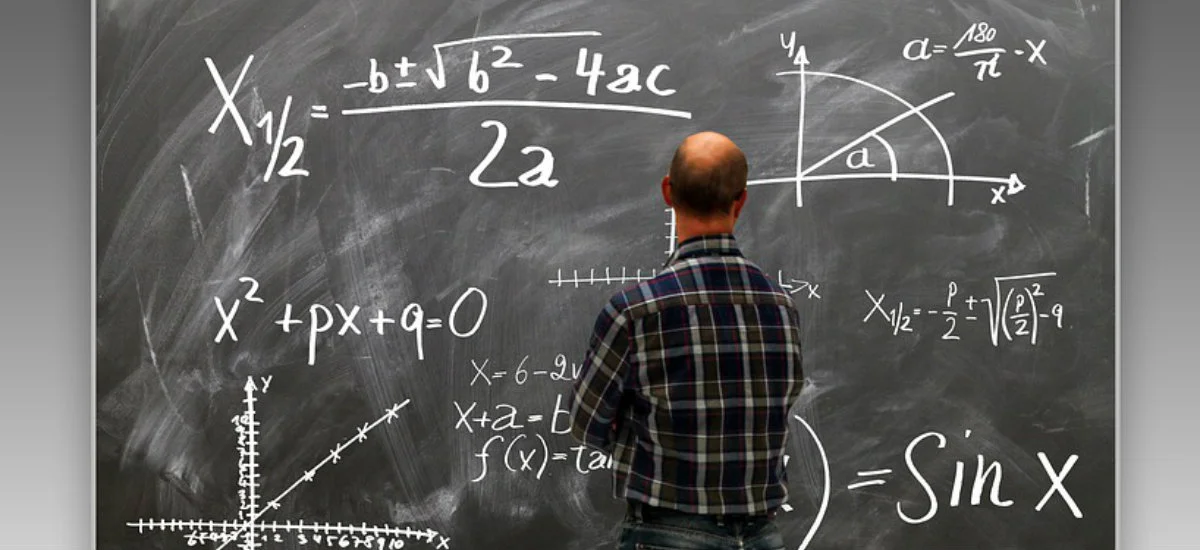 X₁/₂ = (-b ± √(b² - 4ac)) / 2a
y
a = 180/π · X
a
x
x
x² + px + q = 0
X₁/₂ = -p/2 ± √((p/2)² - q)
X = 6 - 2
X + a = b
f(x) = tan
) = Sin x
y
x